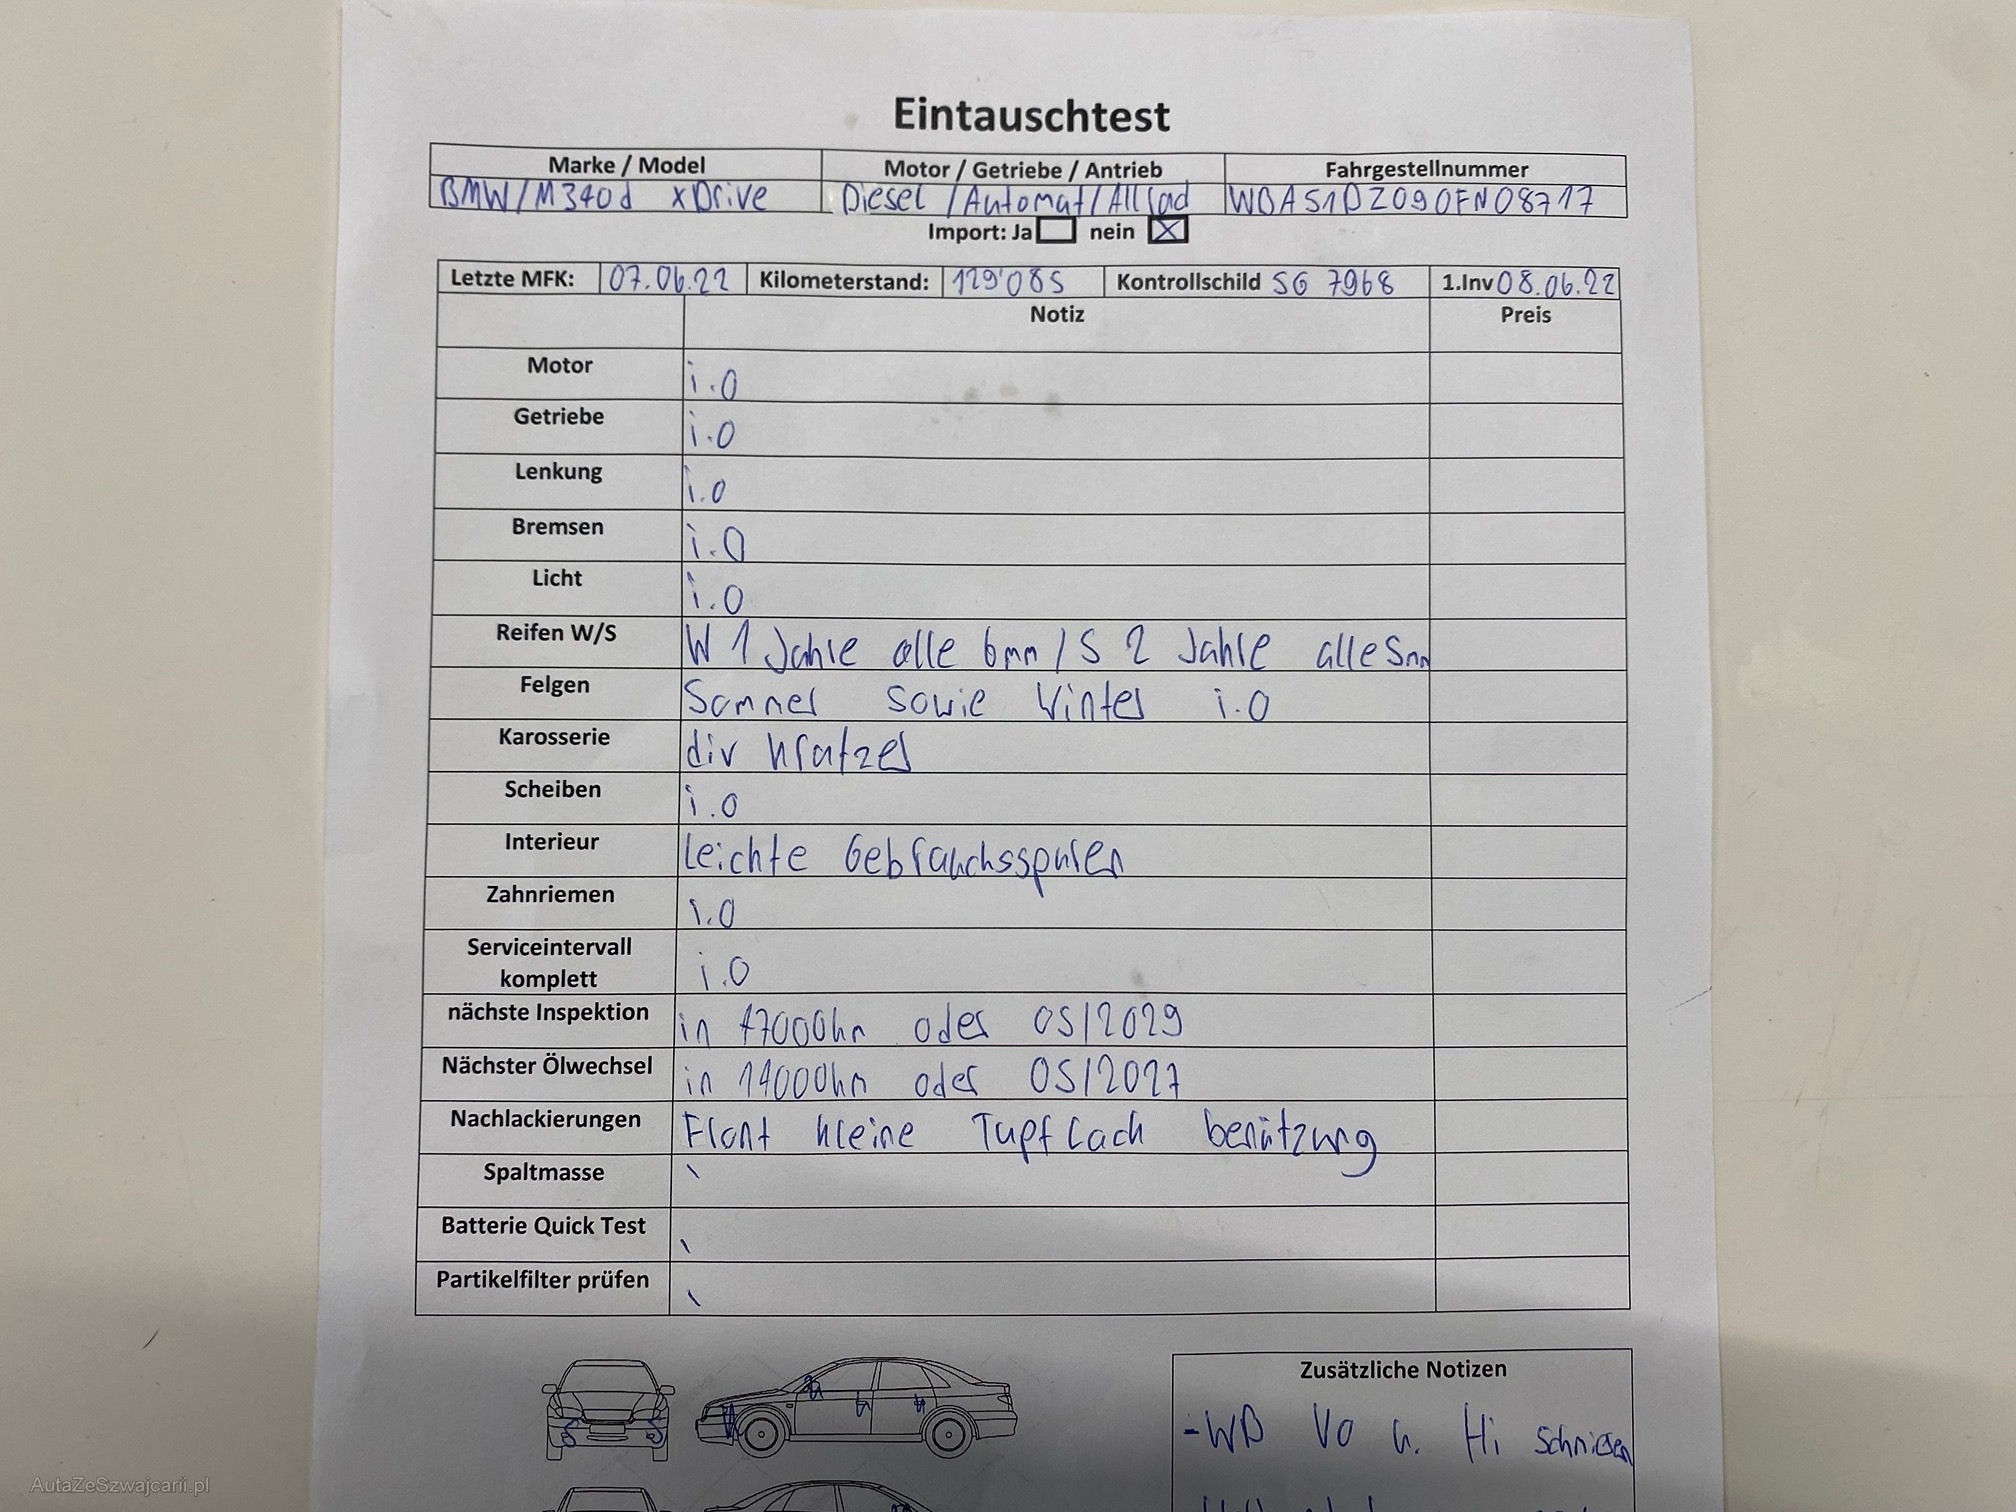 Eintauschtest
Marke / Model Motor / Getriebe / Antrieb Fahrgestellnummer
BMW/M340d xDrive Diesel /Automat/Allrad WBA51DZ090FN08717
Import: Ja nein X
Letzte MFK: 07.06.22 Kilometerstand: 129'085 Kontrollschild SG 7968 1.Inv 08.06.22
Notiz Preis
Motor i.O
Getriebe i.O
Lenkung i.O
Bremsen i.O
Licht i.O
Reifen W/S W 1 Jahre alle 6mm / S 2 Jahre alle 5mm
Felgen Sommer sowie Winter i.O
Karosserie div Kratzer
Scheiben i.O
Interieur Leichte Gebrauchsspuren
Zahnriemen i.O
Serviceintervall
komplett i.O
nächste Inspektion in 47000km oder 05/2029
Nächster Ölwechsel in 14000km oder 05/2027
Nachlackierungen Front kleine Tupf Lack benützung
Spaltmasse
Batterie Quick Test
Partikelfilter prüfen
Zusätzliche Notizen
-WB Vo u. Hi
AutaZeSzwajcarii.pl